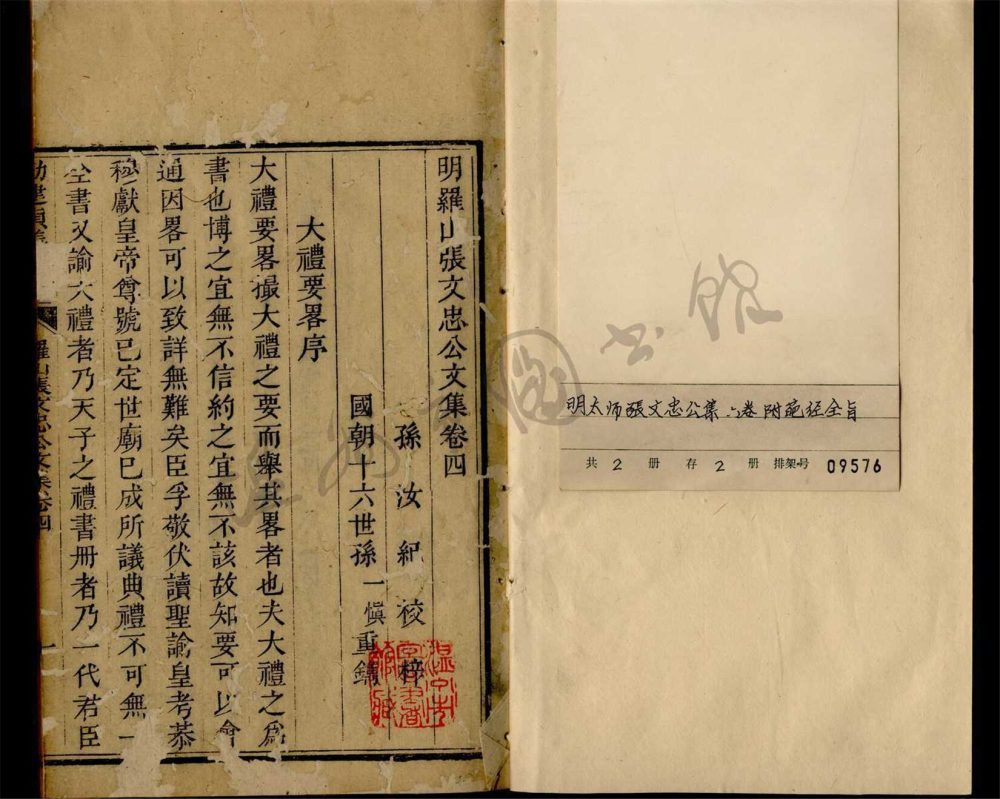 明太师張文忠公集 六卷 附範経全旨
共 2 册 存 2 册 排架号 09576
明羅山張文忠公文集卷四
孫汝紀校梓
國朝十六世孫一愼重鐫
大禮要畧序
大禮要畧撮大禮之要而舉其畧者也夫大禮之爲
書也博之宜無不信約之宜無不該故知要可以會
通因畧可以致詳無難矣臣孚敬伏讀聖諭皇考恭
穆獻皇帝尊號已定世廟已成所議典禮不可無一
全書又諭大禮者乃天子之禮書冊者乃一代君臣
羅山張文忠公文集卷四
一